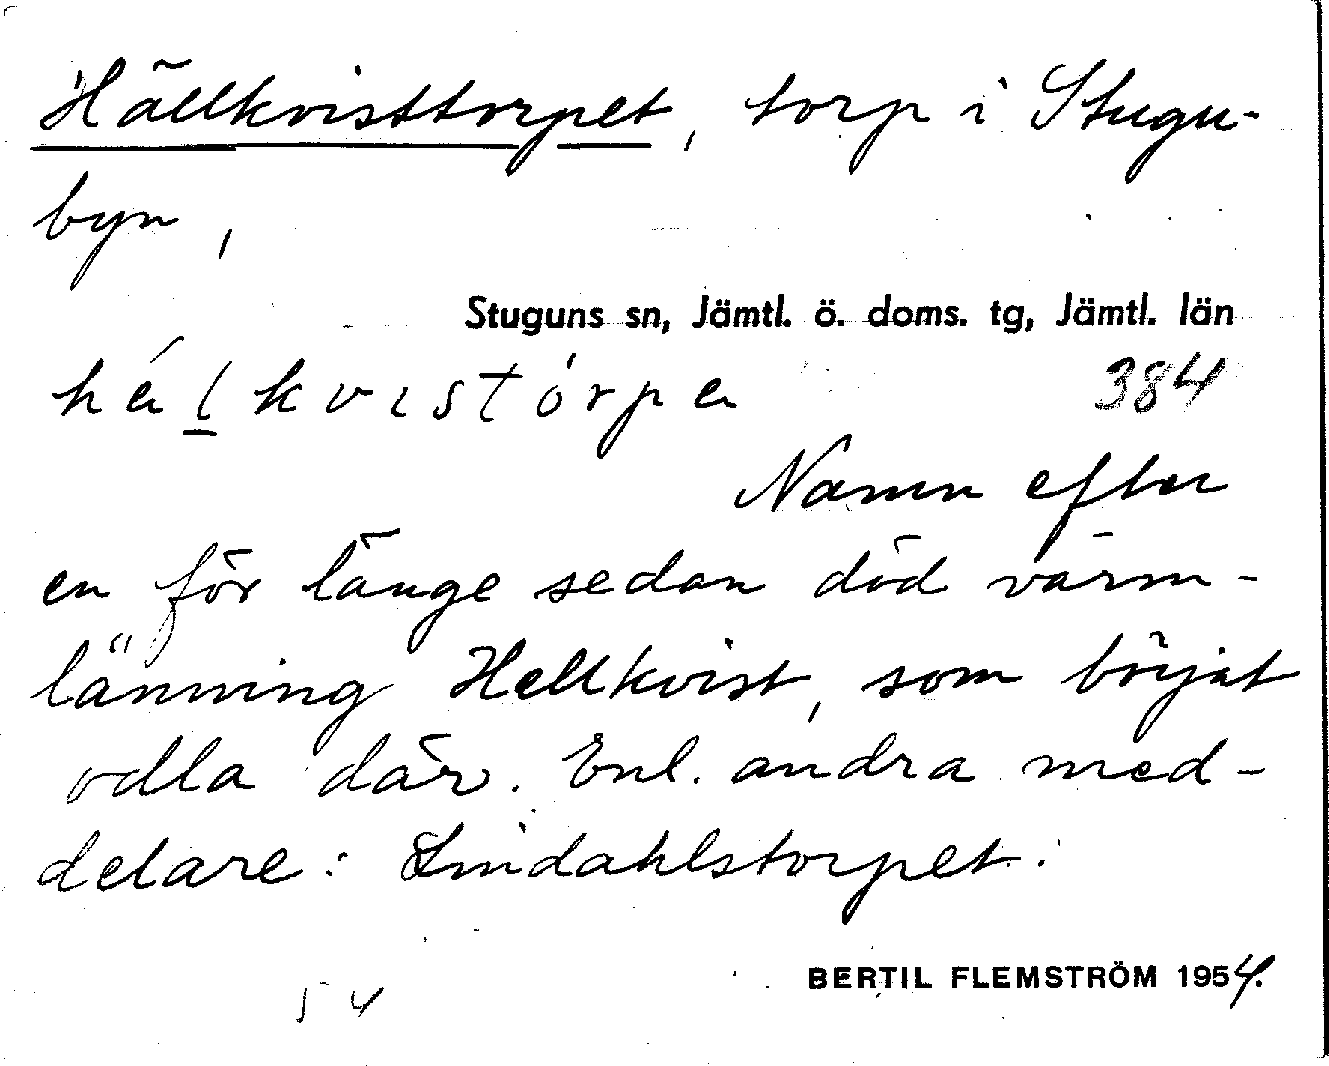 Hällkvisttorpet, torp i Stugu-
byn,
Stuguns sn, Jämtl. ö. doms. tg, Jämtl. län
hálkvistórpa
384
Namn efter
en för länge sedan död värm-
länning Hellkvist, som börjat
odla där. Enl. andra med-
delare: Lindahlstorpet.
BERTIL FLEMSTRÖM 1954.
54